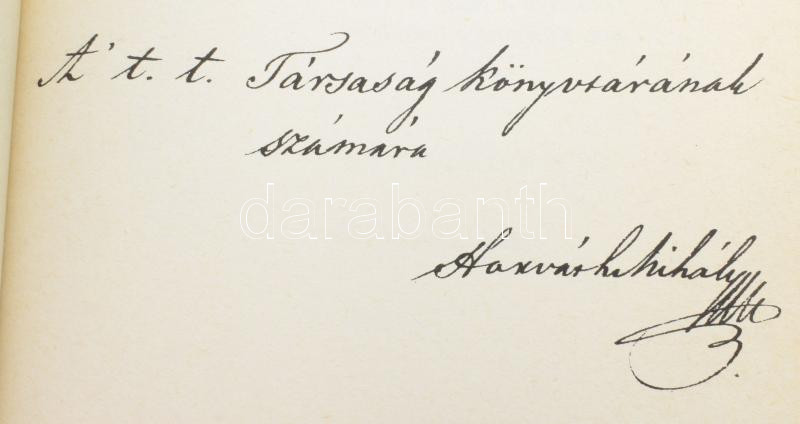 A' t. t. Társaság könyvtárának
számára
darabanth
Horváth Mihály